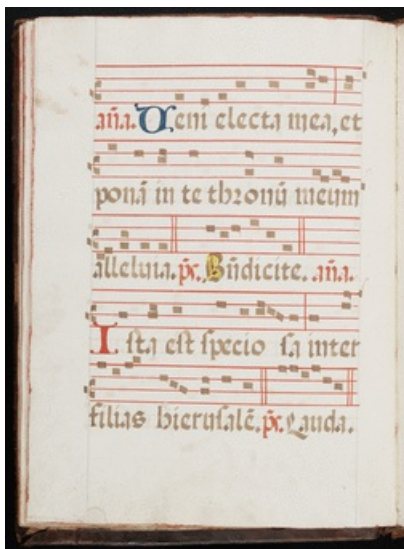 aña. Veni electa mea, et
ponā in te thronū meum
alleluia. p̄s. Bñdicite. aña.
Ista est specio sa inter
filias hierusalē. p̄s. Lauda.